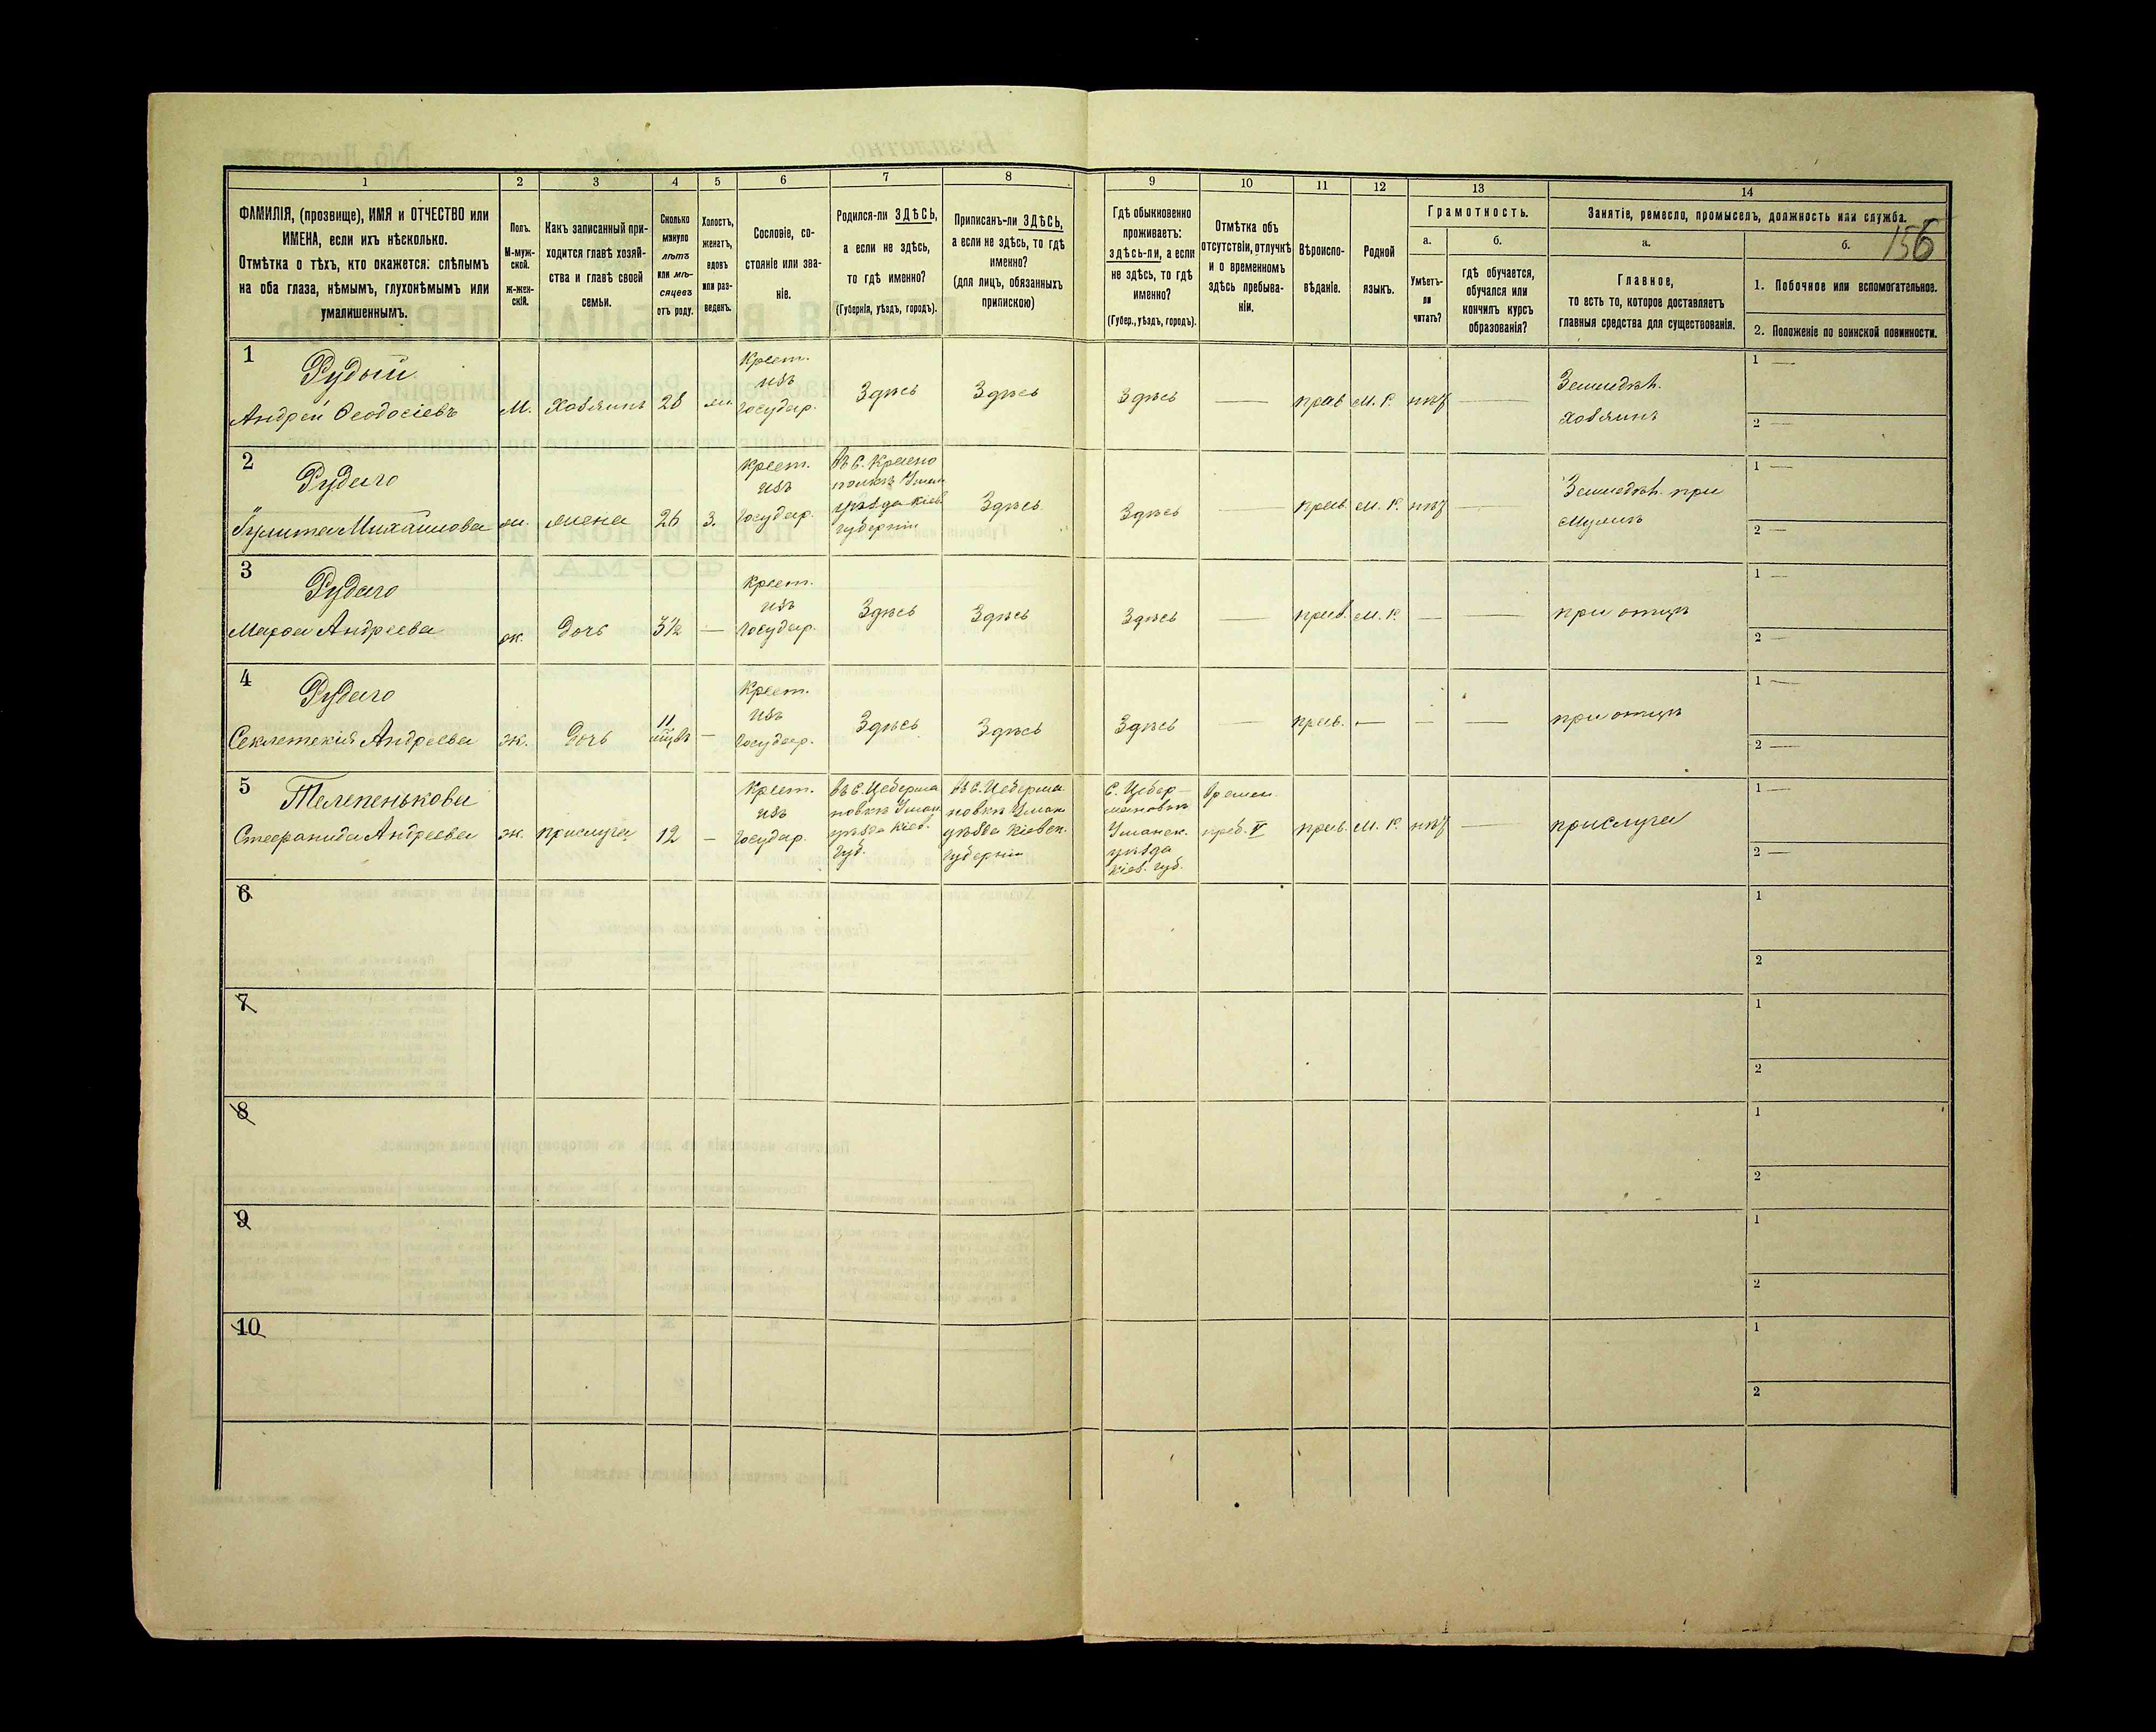 156
1 2 3 4 5 6 7 8 9 10 11 12 13 14
ФАМИЛІЯ, (прозвище), ИМЯ и ОТЧЕСТВО или
ИМЕНА, если ихъ нѣсколько.
Отмѣтка о тѣхъ, кто окажется: слѣпымъ
на оба глаза, нѣмымъ, глухонѣмымъ или
умалишеннымъ.
Полъ.
М-муж-
ской.
ж-жен-
скій.
Какъ записанный при-
ходится главѣ хозяй-
ства и главѣ своей
семьи.
Сколько
минуло
лѣтъ
или мѣ-
сяцевъ
отъ роду.
Холостъ,
женатъ,
вдовъ
или раз-
веденъ.
Сословіе, со-
стояніе или зва-
ніе.
Родился-ли ЗДѢСЬ,
а если не здѣсь,
то гдѣ именно?
(Губернія, уѣздъ, городъ).
Приписанъ-ли ЗДѢСЬ,
а если не здѣсь, то гдѣ
именно?
(для лицъ, обязанныхъ
припискою)
Гдѣ обыкновенно
проживаетъ:
здѣсь-ли, а если
не здѣсь, то гдѣ
именно?
(Губер., уѣздъ, городъ).
Отмѣтка объ
отсутствіи, отлучкѣ
и о временномъ
здѣсь пребыва-
ніи.
Вѣроиспо-
вѣданіе.
Родной
языкъ.
Грамотность.
а.
Умѣетъ-
ли
читать?
б.
гдѣ обучается,
обучался или
кончилъ курсъ
образованія?
Занятіе, ремесло, промыселъ, должность или служба.
а.
Главное,
то есть то, которое доставляетъ
главныя средства для существованія.
б.
1. Побочное или вспомогательное.
2. Положеніе по воинской повинности.
1
Рудый
Андрей Ѳеодосіевъ
М.
Хозяинъ
28
жен.
Крест.
изъ
Государ.
Здѣсь
Здѣсь
Здѣсь
—
прав
М. Р.
нѣт
—
Земледѣл.
Хозяинъ
1 —
2 —
2
Рудаго
Михайлова
ж.
жена
26
З.
Крест.
изъ
Государ.
Въ С. Красно
полкѣ Уман
уѣзда Кіев.
губерніи
Здѣсь
Здѣсь
—
прав.
М. Р.
нѣт
—
Земледѣл. при
Мужѣ
1 —
2 —
3
Рудаго
Марѳа Андреева
ж.
дочь
3½
—
Крест.
изъ
Государ.
Здѣсь
Здѣсь
Здѣсь
—
прав.
М. Р.
—
—
при отцѣ
1 —
2 —
4
Рудаго
Секлетекія Андреева
ж.
дочь
11
мцвъ
—
Крест.
изъ
Государ.
Здѣсь
Здѣсь
Здѣсь
—
прав.
—
—
—
при отцѣ
1 —
2 —
5
Телепенькова
Стефанида Андреева
ж.
прислуга
12
—
Крест.
изъ
Государ.
Въ С. Цеберма
новкѣ Уман.
уѣзда Кіев.
Губ.
Въ С. Цеберма
новкѣ Уман
уѣзда Кіевск.
Губерніи
С. Цебер-
мановкѣ
Уманск.
уѣзда
Кіев. губ.
Времен
преб. V
прав.
М. Р.
нѣт
—
прислуга
1 —
2 —
6
1
2
7
1
2
8
1
2
9
1
2
10
1
2